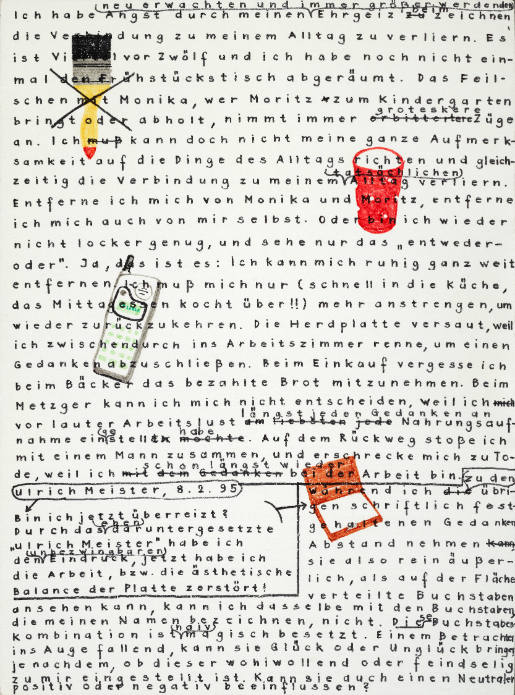 neu erwachten und immer größer werdenden
Ich habe Angst durch meinen Ehrgeiz beim zeichnen
die Verbindung zu meinem Alltag zu verliern. Es
ist Viertel vor Zwölf und ich habe noch nicht ein-
mal den Frühstückstisch abgeräumt. Das Feil-
schen mit Monika, wer Moritz zum Kindergarten
groteskere
bringt oder abholt, nimmt immer erbittertere Züge
an. Ich muß kann doch nicht meine ganze Aufmerk-
samkeit auf die Dinge des Alltags richten und gleich-
tatsächlichen)
zeitig die Verbindung zu meinem Alltag verliern.
Entferne ich mich von Monika und Moritz, entferne
ich mich auch von mir selbst. Oder bin ich wieder
nicht locker genug, und sehe nur das „entweder-
oder". Ja, das ist es: Ich kann mich ruhig ganz weit
entfernen. Ich muß mich nur (schnell in die Küche,
das Mittagessen kocht über!!) mehr anstrengen, um
wieder zurückzukehren. Die Herdplatte versaut, weil
ich zwischendurch ins Arbeitszimmer renne, um einen
Gedanken abzuschließen. Beim Einkauf vergesse ich
beim Bäcker das bezahlte Brot mitzunehmen. Beim
Metzger kann ich mich nicht entscheiden, weil ich mich
längst jeden Gedanken an
vor lauter Arbeitslust am liebsten jede Nahrungsauf-
ge habe
nahme einstellen möchte. Auf dem Rückweg stoße ich
mit einem Mann zusammen, und erschrecke mich zu To-
schon längst wieder
de, weil ich mit dem Gedanken bei der Arbeit bin.
ulrich Meister, 8.2.95
Bin ich jetzt überreizt?
(eben)
Durch das daruntergesetzte
„ulrich Meister" habe ich
(unbezwingbaren)
den Eindruck, jetzt habe ich
die Arbeit, bzw. die ästhetische
Balance der Platte zerstört!
zu den
während ich die übri-
gen schriftlich fest-
gehaltenen Gedanken
Abstand nehmen kann,
sie also rein äußer-
lich, als auf der Fläche
verteilte Buchstaben
ansehen kann, kann ich dasselbe mit den Buchstaben,
se
die meinen Namen bezeichnen, nicht. Die Buchstaben
(naiv)
Kombination ist magisch besetzt. Einem Betrachter
ins Auge fallend, kann sie Glück oder Unglück bringen
je nachdem, ob dieser wohlwollend oder feindselig
zu mir eingestellt ist. Kann sie auch einen Neutralen
positiv oder negativ beeinflussen?